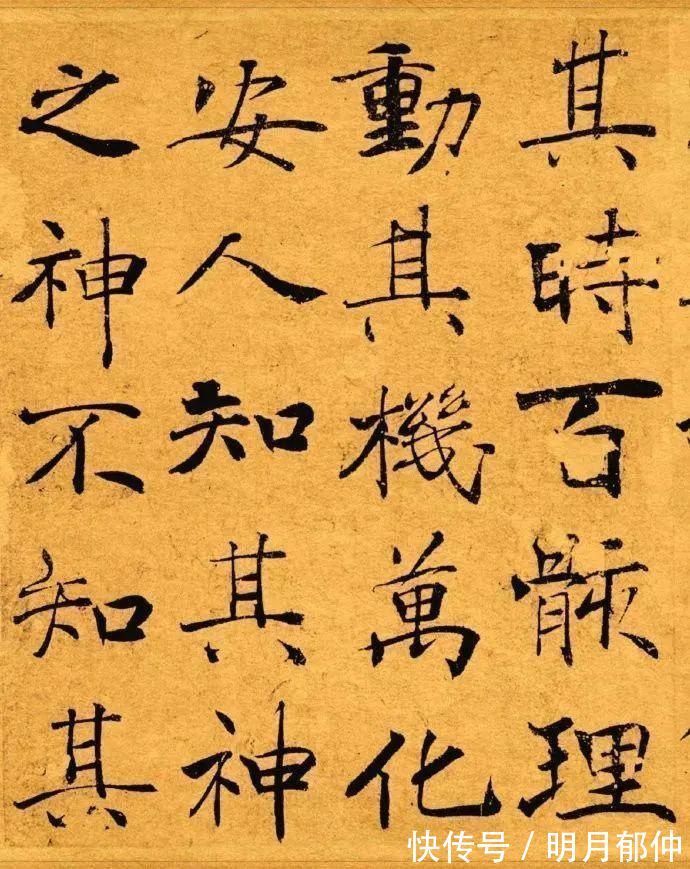 其時百骸理
動其機萬化
安人知其神
之神不知其
快传号 / 明月郁仲